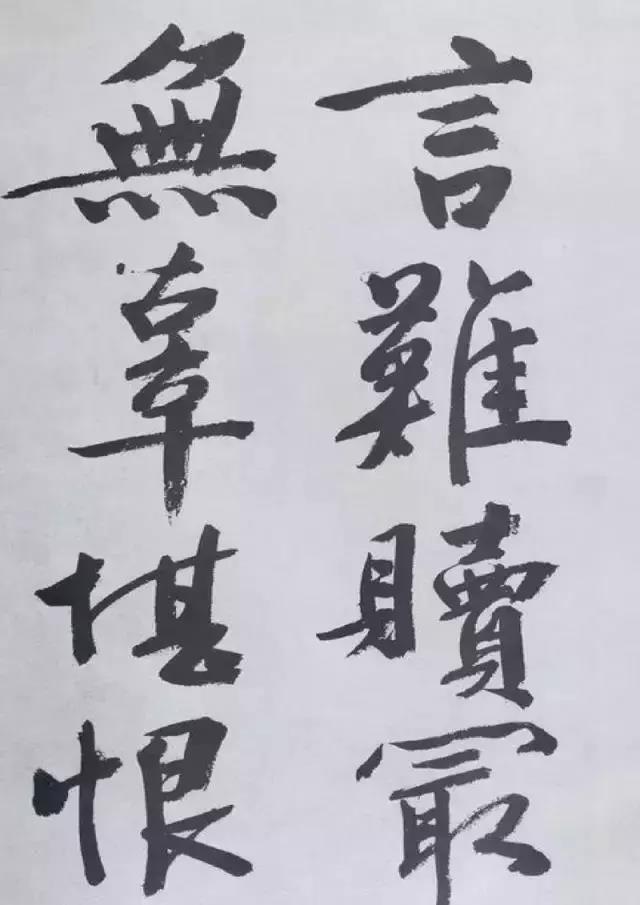 言難贖冣
無辜堪恨